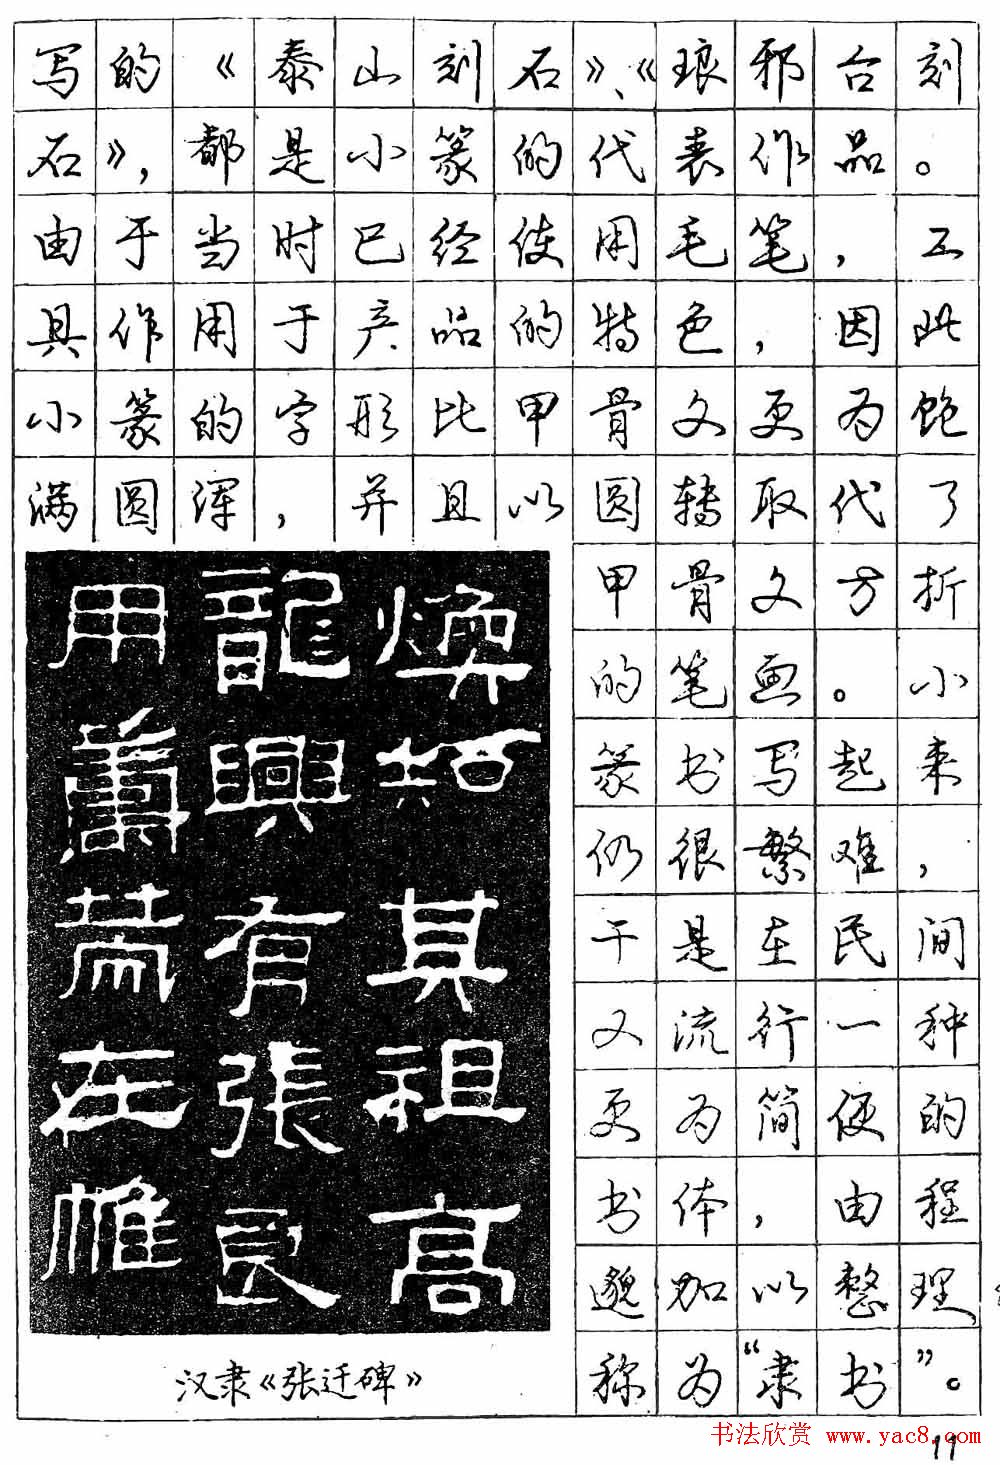 写的《泰山刻石》、《琅邪台刻
石》，都是小篆的代表作品。
由于当时已经使用毛笔，工
具作用于产品的特色，因此
小篆的字形比甲骨文更为饱
满圆浑，并且以圆转取代了
甲骨文方折
的笔画。小
篆书写起来
仍很繁难，
于是在民间
又流行一种
更为简便的
书体，由程
邈加以整理，
称为“隶书”。
煥知其祖高
龍興有張良
用籌策在帷
汉隶《张迁碑》
书法欣赏 www.yac8.com
11